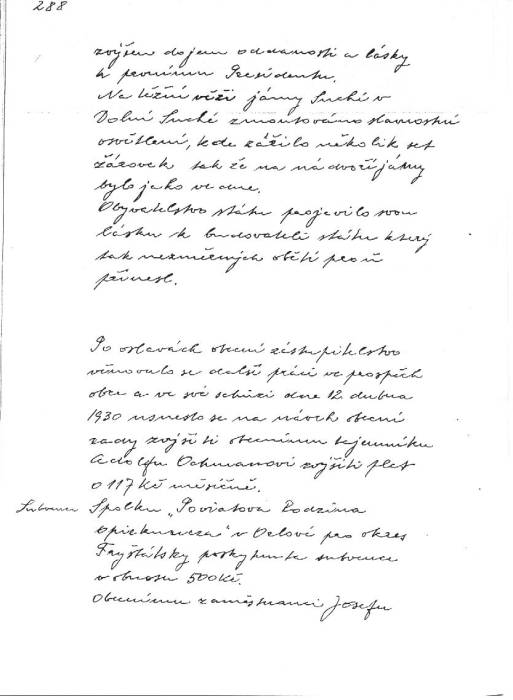 288
zvýšen dojem oddanosti a lásky
k prvnímu Presidentu.
Na těžní věži jámy Suché v
Dolní Suché zmontováno slavnostní
osvětlení, kde zářilo několik set
žárovek tak že na nádvoří jámy
bylo jako ve dne.
Obyvatelstvo státu projevilo svou
lásku k budovateli státu který
tak nezměrných obětí proň
přinesl.
Po oslavách obecní zastupitelstvo
věnovalo se další práci ve prospěch
obce a ve své schůzi dne 12. dubna
1930 usneslo se na návrh obecní
rady zvýšiti obecnímu tajemníku
Adolfu Ochmanovi zvýšiti plat
o 117 Kč měsíčně.
Subvence Spolku „Powiatova Rodzina
Opiekuncza" v Orlové pro okres
Fryštátský poskytnuta subvence
v obnosu 500 Kč.
Obecnímu zaměstnanci Josefu